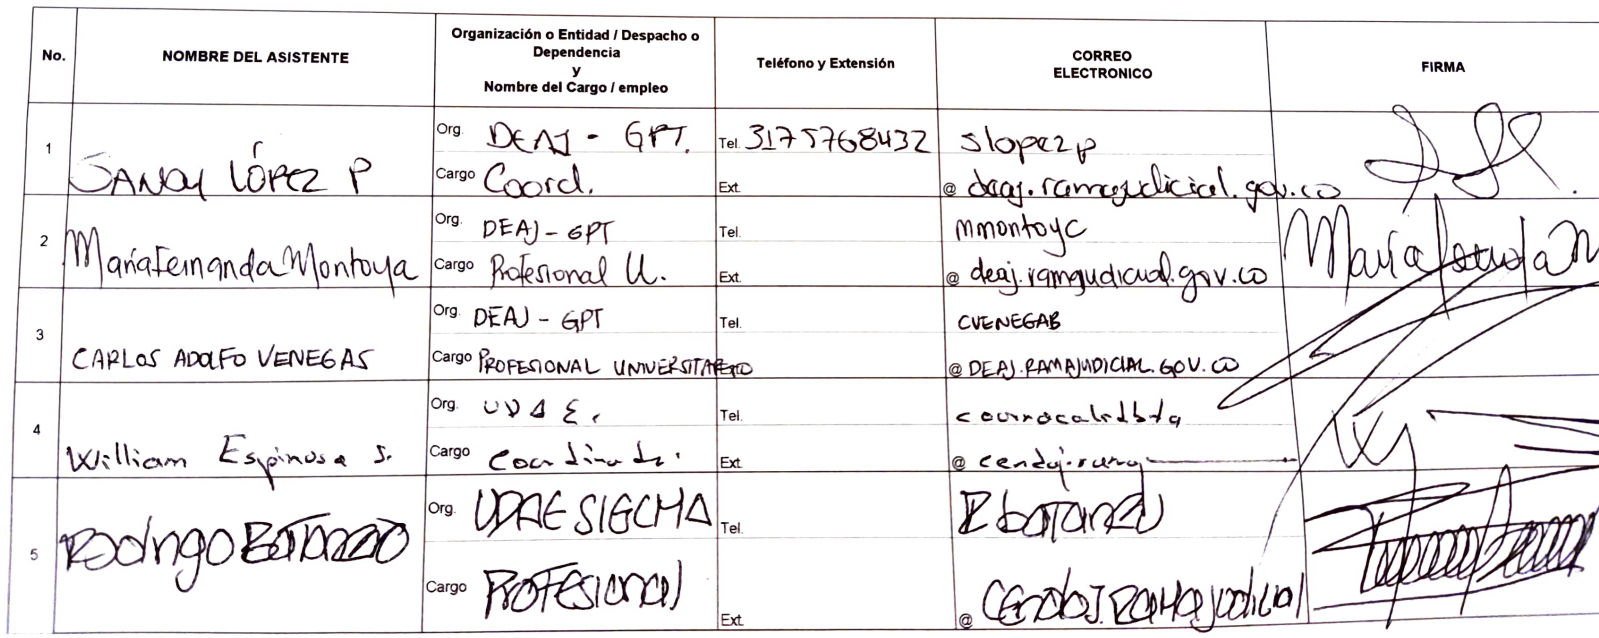 No.
NOMBRE DEL ASISTENTE
Organización o Entidad / Despacho o
Dependencia
y
Nombre del Cargo / empleo
Teléfono y Extensión
CORREO
ELECTRONICO
FIRMA
1
SANDY LÓPEZ P
Org. DEAJ - GPT.
Cargo Coord.
Tel. 3175768432
Ext.
slopezp
@ deaj.ramajudicial.gov.co
2
María Fernanda Montoya
Org. DEAJ - GPT
Cargo Profesional U.
Tel.
Ext.
mmontoyc
@ deaj.ramajudicial.gov.co
3
CARLOS ADOLFO VENEGAS
Org. DEAJ - GPT
Cargo PROFESIONAL UNIVERSITARIO
Tel.
CVENEGAB
@ DEAJ.RAMAJUDICIAL.GOV.CO
4
William Espinosa S.
Org. UDAE.
Cargo Coordinador.
Tel.
Ext.
@ cendoj.ramaj
5
Rodrigo
Org. UDAE SIGCMA
Cargo Profesional
Tel.
Ext.
@ Cendoj.Ramajudicial